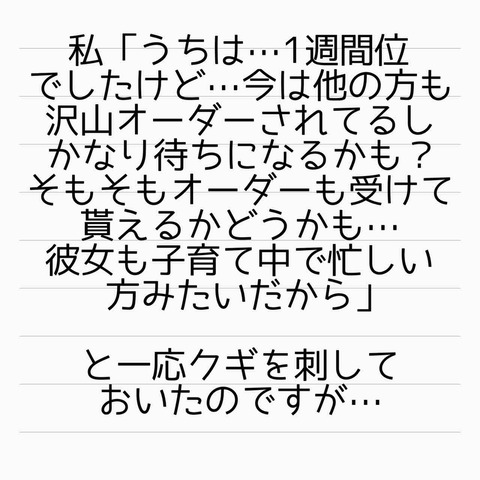 私「うちは…1週間位
でしたけど…今は他の方も
沢山オーダーされてるし
かなり待ちになるかも?
そもそもオーダーも受けて
貰えるかどうかも…
彼女も子育て中で忙しい
方みたいだから」
と一応クギを刺して
おいたのですが…